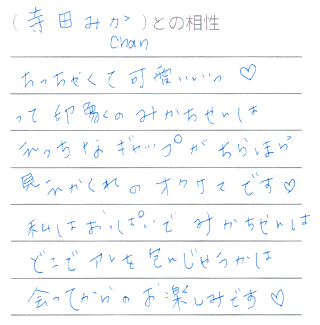 (寺田みか)との相性
chan
ちっちゃくて可愛いいっ♡
って印象のみかちゃんは
えっちなギャップがちらほら
見えかくれのオクサマです♡
私はおっぱいでみかちゃんは
どこでアレを包んじゃうかは
会ってからのお楽しみです♡